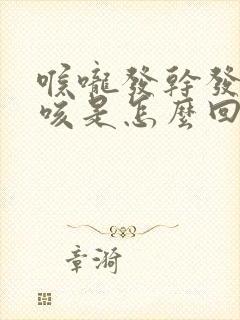 喉嚨發幹發
咳是怎麼回
章漪